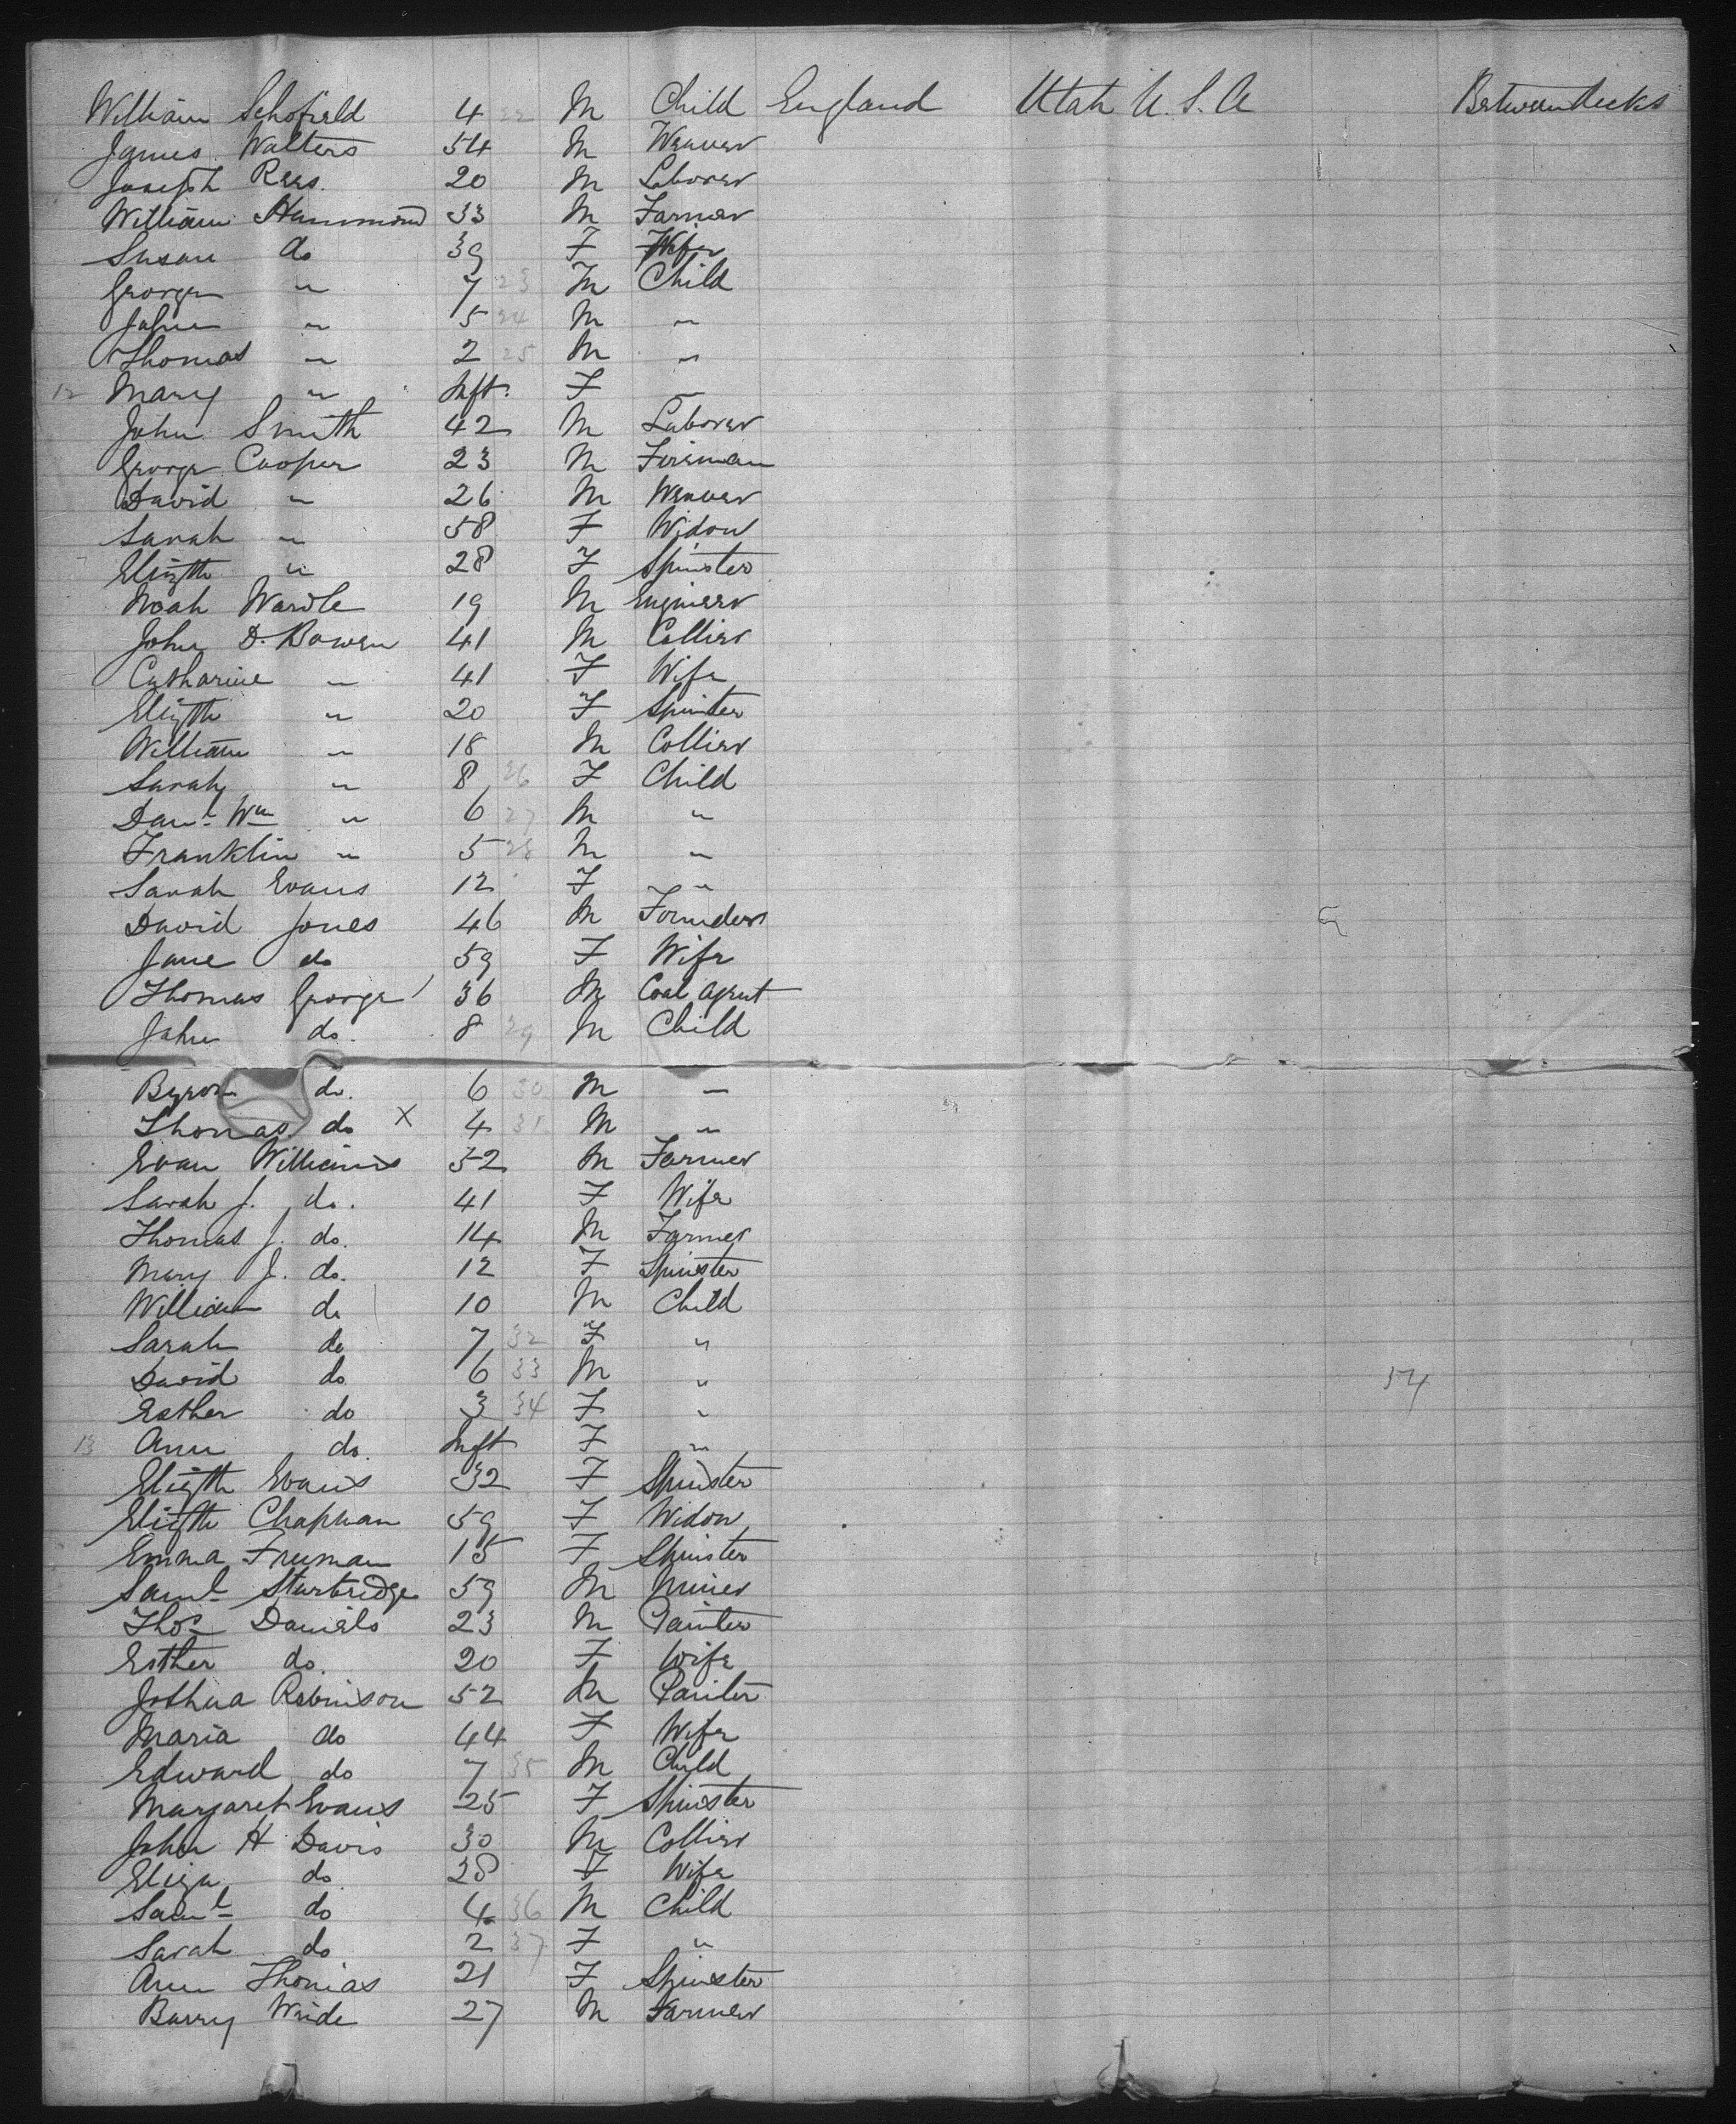 William Schofield 4 22 M Child England Utah U.S.A Between Decks
James Walters 54 M Weaver
Joseph Rees. 20 M Laborer
William Hammond 33 M Farmer
Susan do 39 F Wife
George " 7 23 M Child
John " 5 24 M "
Thomas " 2 25 M "
12 Mary " Inft. F "
John Smith 42 M Laborer
George Cooper 23 M Fireman
David " 26 M Weaver
Sarah " 58 F Widow
Elizth " 28 F Spinster
Noah Wardle 19 M Engineer
John D. Bowen 41 M Collier
Catharine " 41 F Wife
Elizth " 20 F Spinster
William " 18 M Collier
Sarah " 8 26 F Child
Danl Wm " 6 27 M "
Franklin " 5 28 M "
Sarah Evans 12 F "
David Jones 46 M Founder
Jane do 59 F Wife
Thomas George 36 M Coal Agent
John do. 8 29 M Child
Byron do. 6 30 M "
Thomas do X 4 31 M "
Evan Williams 52 M Farmer
Sarah J. do. 41 F Wife
Thomas J. do. 14 M Farmer
Mary J. do. 12 F Spinster
William do 10 M Child
Sarah do 7 32 F "
David do 6 33 M " 54
Esther do 3 34 F "
13 Ann do. Inft F "
Elizth Evans 32 F Spinster
Elizth Chapman 59 F Widow
Emma Freeman 15 F Spinster
Saml Sturbridge 59 M Miner
Thos Daniels 23 M Painter
Esther do. 20 F Wife
Joshua Robinson 52 M Painter
Maria do 44 F Wife
Edward do 7 35 M Child
Margaret Evans 25 F Spinster
John H Davis 30 M Collier
Eliza do 28 F Wife
Saml do 4 36 M Child
Sarah do 2 37 F "
Ann Thomas 21 F Spinster
Barry Wride 27 M Farmer